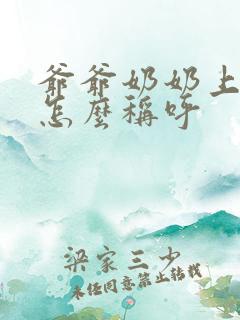 爺爺奶奶上
怎麼稱呼
梁家三少
未经同意禁止转载